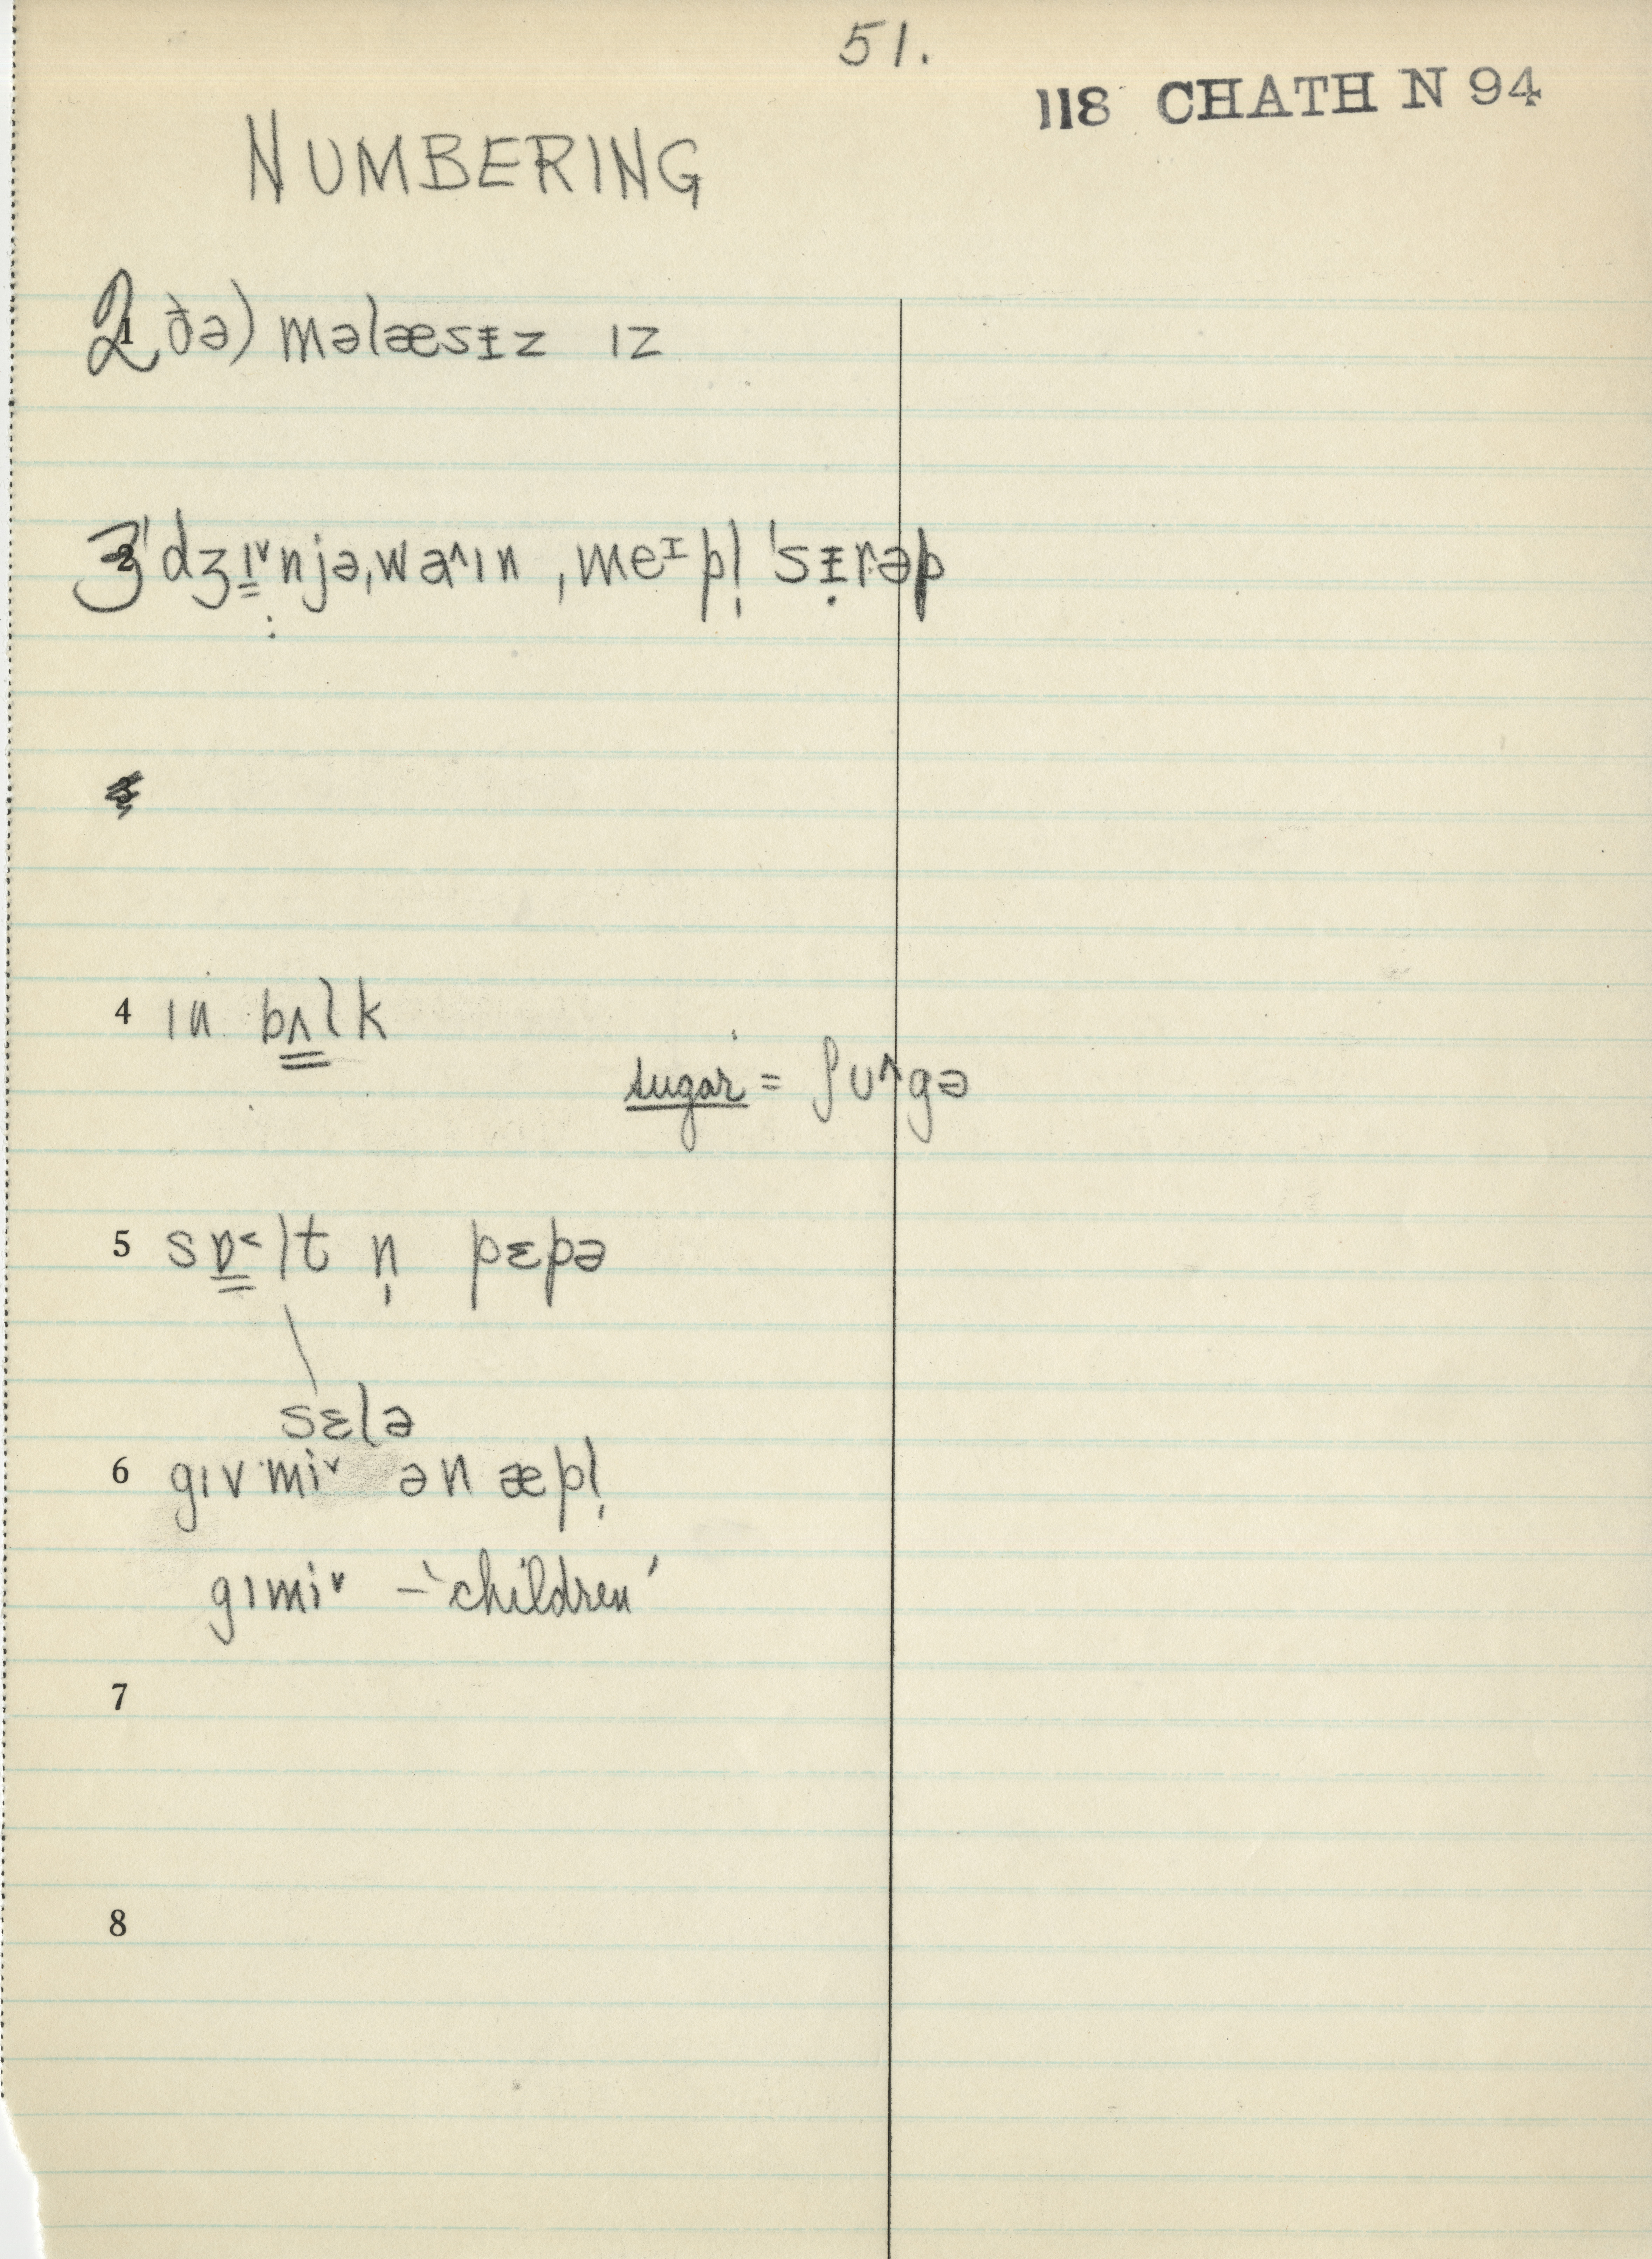 51.
118 CHATH N 94
NUMBERING
2 ðə) məlæsɪ̵z ɪz
3 ˈdʒɪ̳ˇnjə,wa^ɪn ,meᶦpl̩ ˈsɪ̵̣rəp
4 ɪn bʌ̳lk
sugar = ʃʊ^gə
5 sɒ̳˂lt n̩ pɛpə
sɛlə
6 gɪv miˇ ən æpl̩
gɪmiˇ – ‘children’
7
8